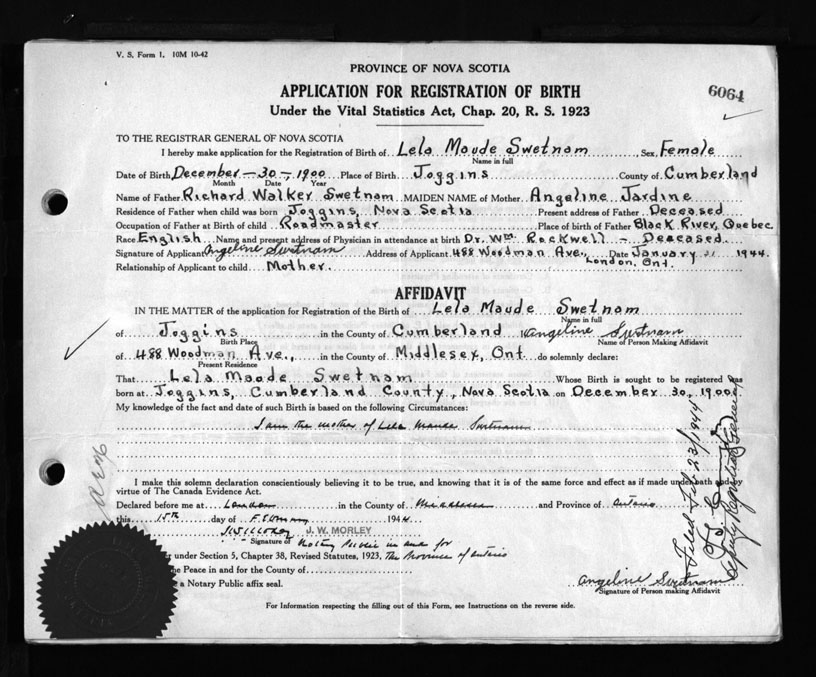 V. S. Form 1. 10M 10-42
PROVINCE OF NOVA SCOTIA
APPLICATION FOR REGISTRATION OF BIRTH
6064
Under the Vital Statistics Act, Chap. 20, R. S. 1923
TO THE REGISTRAR GENERAL OF NOVA SCOTIA
I hereby make application for the Registration of Birth of Lela Maude Swetnam Sex Female
Name in full
Date of Birth December - 30 - 1900 Place of Birth Joggins County of Cumberland
Month Date Year
Name of Father Richard Walker Swetnam MAIDEN NAME of Mother Angeline Jardine
Residence of Father when child was born Joggins, Nova Scotia Present address of Father Deceased
Occupation of Father at Birth of child Roadmaster Place of birth of Father Black River, Quebec
Race English Name and present address of Physician in attendance at birth Dr. Wm. Rockwell - Deceased
Signature of Applicant Angeline Swetnam Address of Applicant 488 Woodman Ave., London, Ont. Date January 21 1944.
Relationship of Applicant to child Mother.
AFFIDAVIT
IN THE MATTER of the application for Registration of the Birth of Lela Maude Swetnam
Name in full
of Joggins in the County of Cumberland Angeline Swetnam
Birth Place Name of Person Making Affidavit
of 488 Woodman Ave., in the County of Middlesex, Ont do solemnly declare:
Present Residence
That Lela Maude Swetnam Whose Birth is sought to be registered was
born at Joggins, Cumberland County, Nova Scotia on December 30, 1900.
My knowledge of the fact and date of such Birth is based on the following Circumstances:
I am the mother of Lela Maude Swetnam
I make this solemn declaration conscientiously believing it to be true, and knowing that it is of the same force and effect as if made under oath and by
virtue of The Canada Evidence Act.
Declared before me at London in the County of Middlesex and Province of Ontario
this 15th day of February 1944
J. W. MORLEY
Signature of Notary Public in and for
under Section 5, Chapter 38, Revised Statutes, 1923, The Province of Ontario
the Peace in and for the County of
a Notary Public affix seal.
Angeline Swetnam
Signature of Person making Affidavit
For Information respecting the filling out of this Form, see Instructions on the reverse side.
Filed Feb 23/1944
Deputy Registrar General